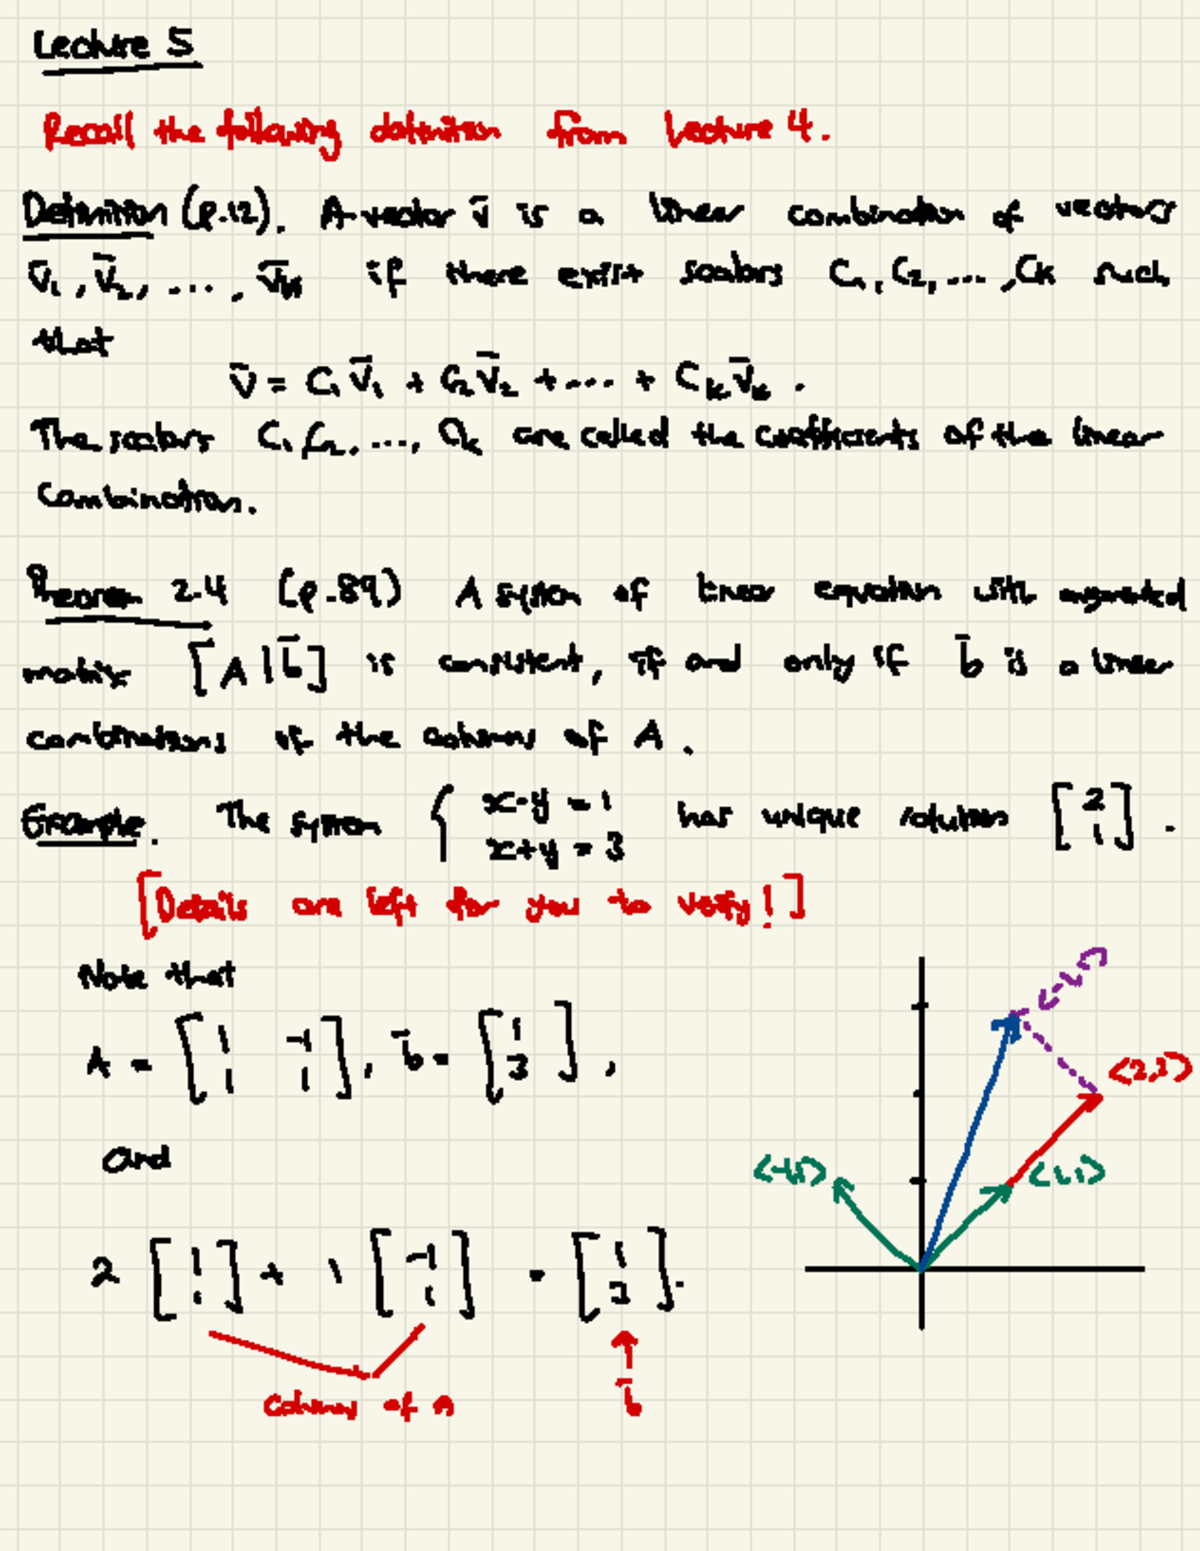 Lecture 5
Recall the following definition from Lecture 4.
Definition (p.12). A vector v̄ is a linear combination of vectors
v̄₁, v̄₂, ..., v̄ₖ if there exist scalars C₁, C₂, ..., Cₖ such
that
v̄ = C₁v̄₁ + C₂v̄₂ + ... + Cₖv̄ₖ .
The scalars C₁, C₂, ..., Cₖ are called the coefficients of the linear
combination.
Theorem 2.4 (p.89) A system of linear equation with augmented
matrix [A | b̄] is consistent, if and only if b̄ is a linear
combinations of the columns of A.
Example. The system { x-y = 1 has unique solution [2
x+y = 3 1].
[Details are left for you to verify!]
Note that
A = [1 -1
1 1], b̄ = [1
3],
and
2 [1
1] + 1 [-1
1] = [1
3].
Columns of A
b̄
<2,2>
<-1,1>
<1,1>